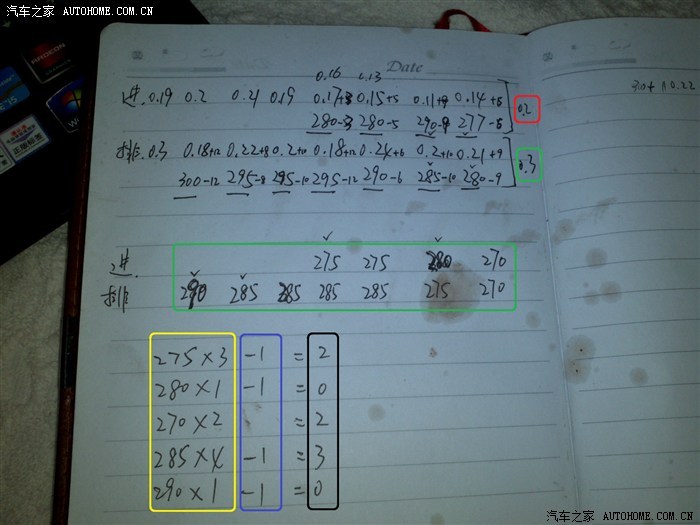 汽车之家 AUTOHOME.COM.CN
RADEON
Windows 7
正版标签
Date
0.16 0.13
进. 0.19 0.2 0.21 0.19 0.17+3 0.15+5 0.11+9 0.14+6
0.2
280-3 280-5 290-9 277-6
排. 0.3 0.18+12 0.22+8 0.2+10 0.18+12 0.24+6 0.2+10 0.21+9
0.3
300-12 295-8 295-10 295-12 290-6 285-10 280-9
进. 275 275 280 270
排 290 285 285 285 285 275 270
275×3 -1 = 2
280×1 -1 = 0
270×2 = 2
285×4 -1 = 3
290×1 -1 = 0
0.22
汽车之家 AUTOHOME.COM.CN